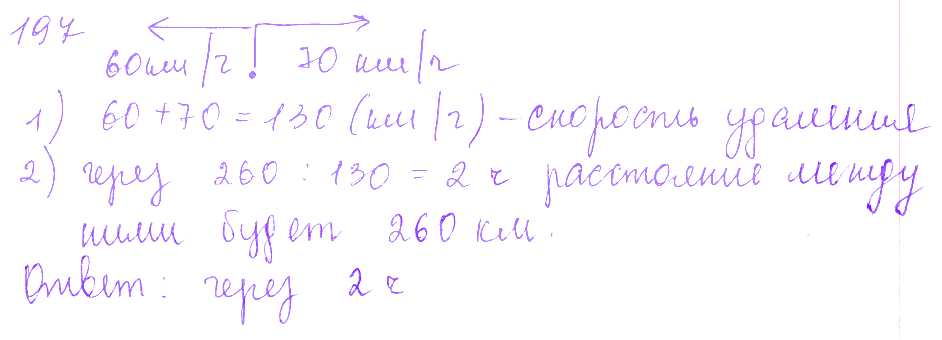 197
60 км/ч 70 км/ч
1) 60 + 70 = 130 (км/ч) – скорость удаления
2) через 260 : 130 = 2 ч расстояние между
ними будет 260 км.
Ответ: через 2 ч